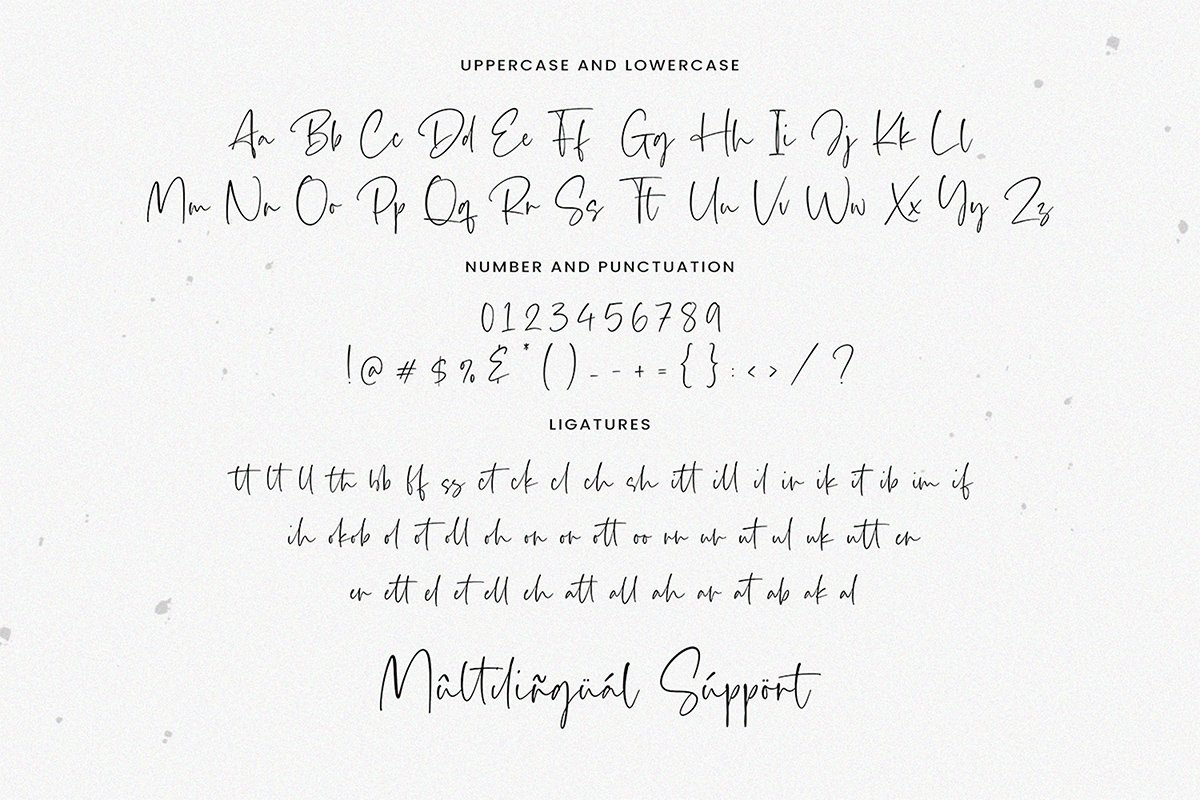 UPPERCASE AND LOWERCASE
Aa Bb Cc Dd Ee Ff Gg Hh Ii Jj Kk Ll
Mm Nn Oo Pp Qq Rr Ss Tt Uu Vv Ww Xx Yy Zz
NUMBER AND PUNCTUATION
0123456789
!@#$%&*()_-+={}:<>/?
LIGATURES
tt lt ll th bb ff ss ct ck cl ch sh itt ill il ir ik it ib im if
ih ok ob ol ot oll oh on or ott oo rr ur ut ul uk utt en
er ett el et ell eh att all ah ar at ab ak al
Mûltiliñgüál Súppört